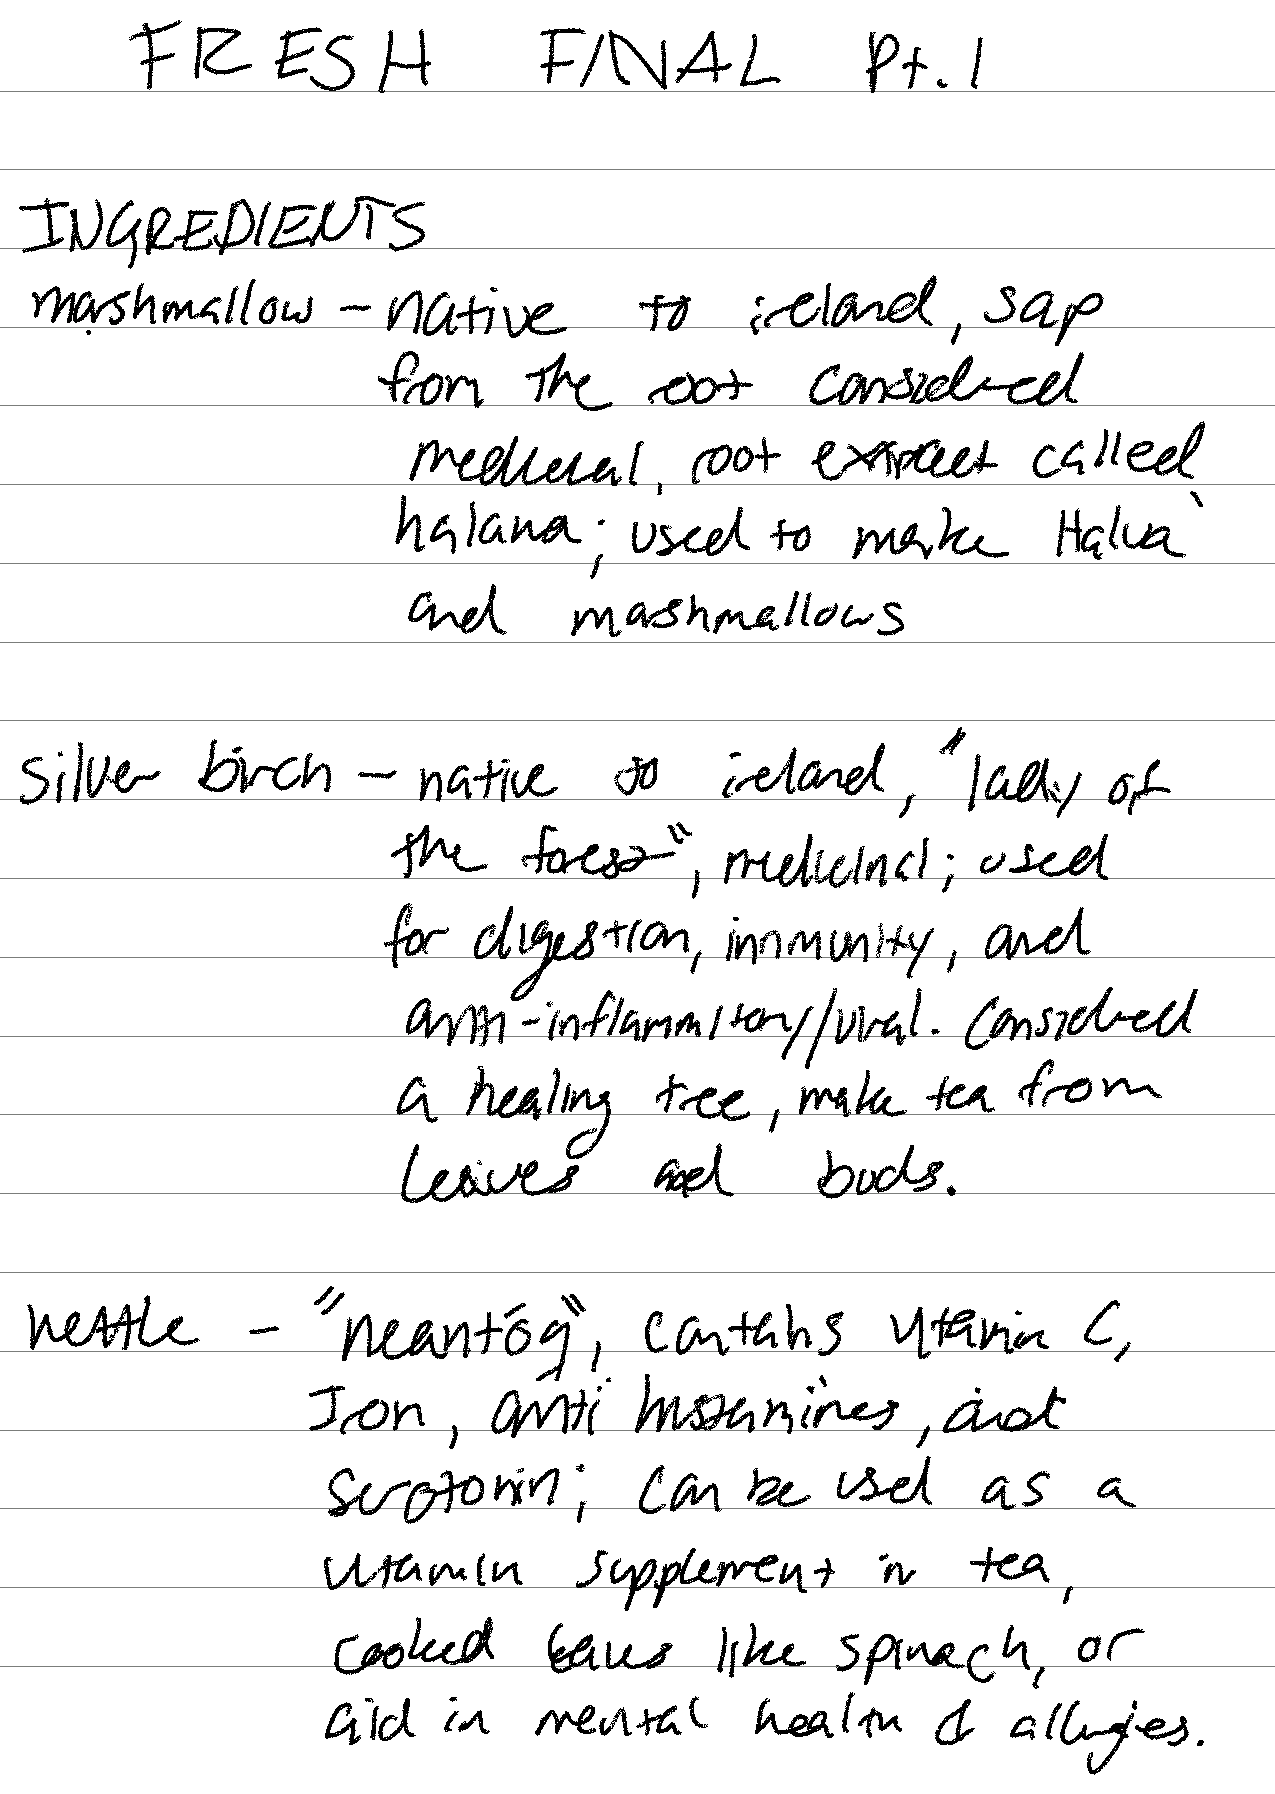 FRESH FINAL Pt. 1
INGREDIENTS
marshmallow - native to ireland, sap
from the root considered
medicinal, root extract called
halana; used to make Halva
and mashmallows
silver birch - native to ireland, "lady of
the forest", medicinal; used
for digestion, immunity, and
anti-inflammitory/viral. Considered
a healing tree, make tea from
leaves and buds.
nettle - "neantóg", contains vitamin C,
Iron, anti histamines, and
serotonin; can be used as a
vitamin supplement in tea,
cooked leaves like spinach, or
aid in mental health & allergies.